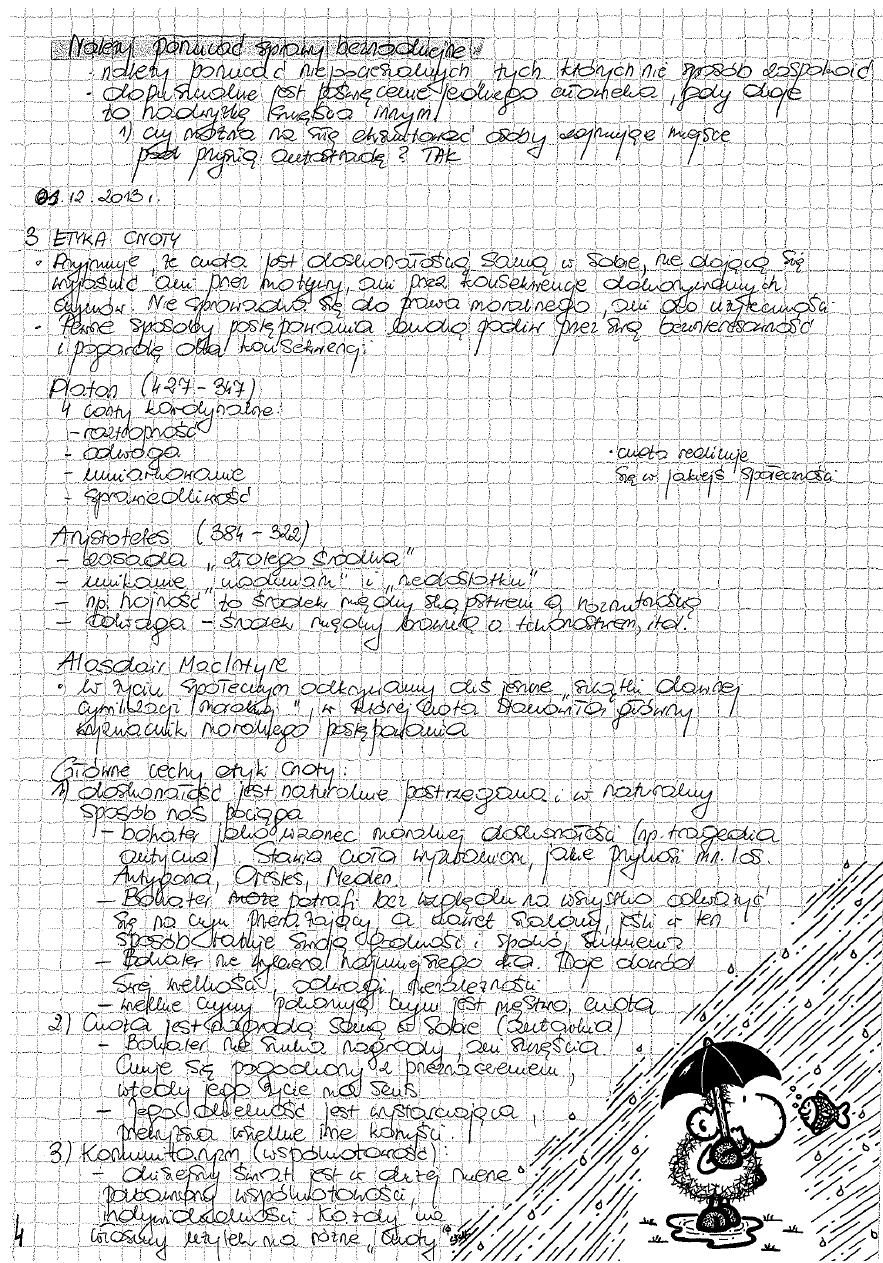 Należy porzucać sprawy beznadziejne
· należy porzucać niepocieszalnych, tych których nie sposób zaspokoić
· dopuszczalne jest poświęcenie jednego człowieka, gdy daje
to nadwyżkę szczęścia innym
1) czy można na siłę eksmitować osoby zajmujące miejsce
pod przyszłą autostradę? TAK
03.12.2013r.
3 ETYKA CNOTY
· Przyjmuje, że cnota jest doskonałością samą w sobie, nie dającą się
wyjaśnić ani przez motywy, ani przez konsekwencje dokonywanych
czynów. Nie sprowadza się do prawa moralnego, ani do użyteczności
· Pewne sposoby postępowania budzą podziw przez swą bezinteresowność
i pogardę dla konsekwencji
Platon (427-347)
4 cnoty kardynalne:
- roztropność
- odwaga
- umiarkowanie
- sprawiedliwość
· cnota realizuje
się w jakiejś społeczności
Arystoteles (384-322)
- zasada "złotego środka"
- unikanie "nadmiaru" i "niedostatku"
- np. hojność to środek między skąpstwem a rozrzutnością
- Odwaga - środek między brawurą a tchórzostwem, itd.
Alasdair MacIntyre
· w życiu społecznym odkrywamy dziś jedynie "szczątki dawnej
cywilizacji moralnej", w której cnota stanowiła główny
wyznacznik moralnego postępowania
Główne cechy etyki cnoty:
1) doskonałość jest naturalnie postrzegana i w naturalny
sposób nas pociąga
- bohater jako wzorzec moralnej doskonałości (np. tragedia
antyczna). Stawia czoła wyzwaniom, jakie przynosi mu los.
Antygona, Orestes, Medea.
- Bohater może potrafi bez względu na wszystko odważyć
się na czyn przerażający, a nawet szalony, jeśli w ten
sposób ratuje swoją godność i spokój sumienia
- Bohater nie wybiera najmniejszego zła. Daje dowód
swej wielkości, odwagi, niezależności
- wielkie czyny pokonują czym jest męstwo, cnota
2) Cnota jest nagrodą samą w sobie (autarkia)
- Bohater nie szuka nagrody, ani szczęścia.
Czuje się pogodzony z przeznaczeniem,
wtedy jego życie ma sens
- Jego dzielność jest wystarczająca,
przewyższa wszelkie inne korzyści.
3) Komunitaryzm (wspólnotowość):
- dzisiejszy świat jest w dużej mierze
pozbawiony wspólnotowości,
indywidualności. Każdy ma
własny użytek na różne "cnoty"
4